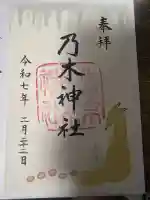 奉拝
乃木神社
令和七年 二月二十二日